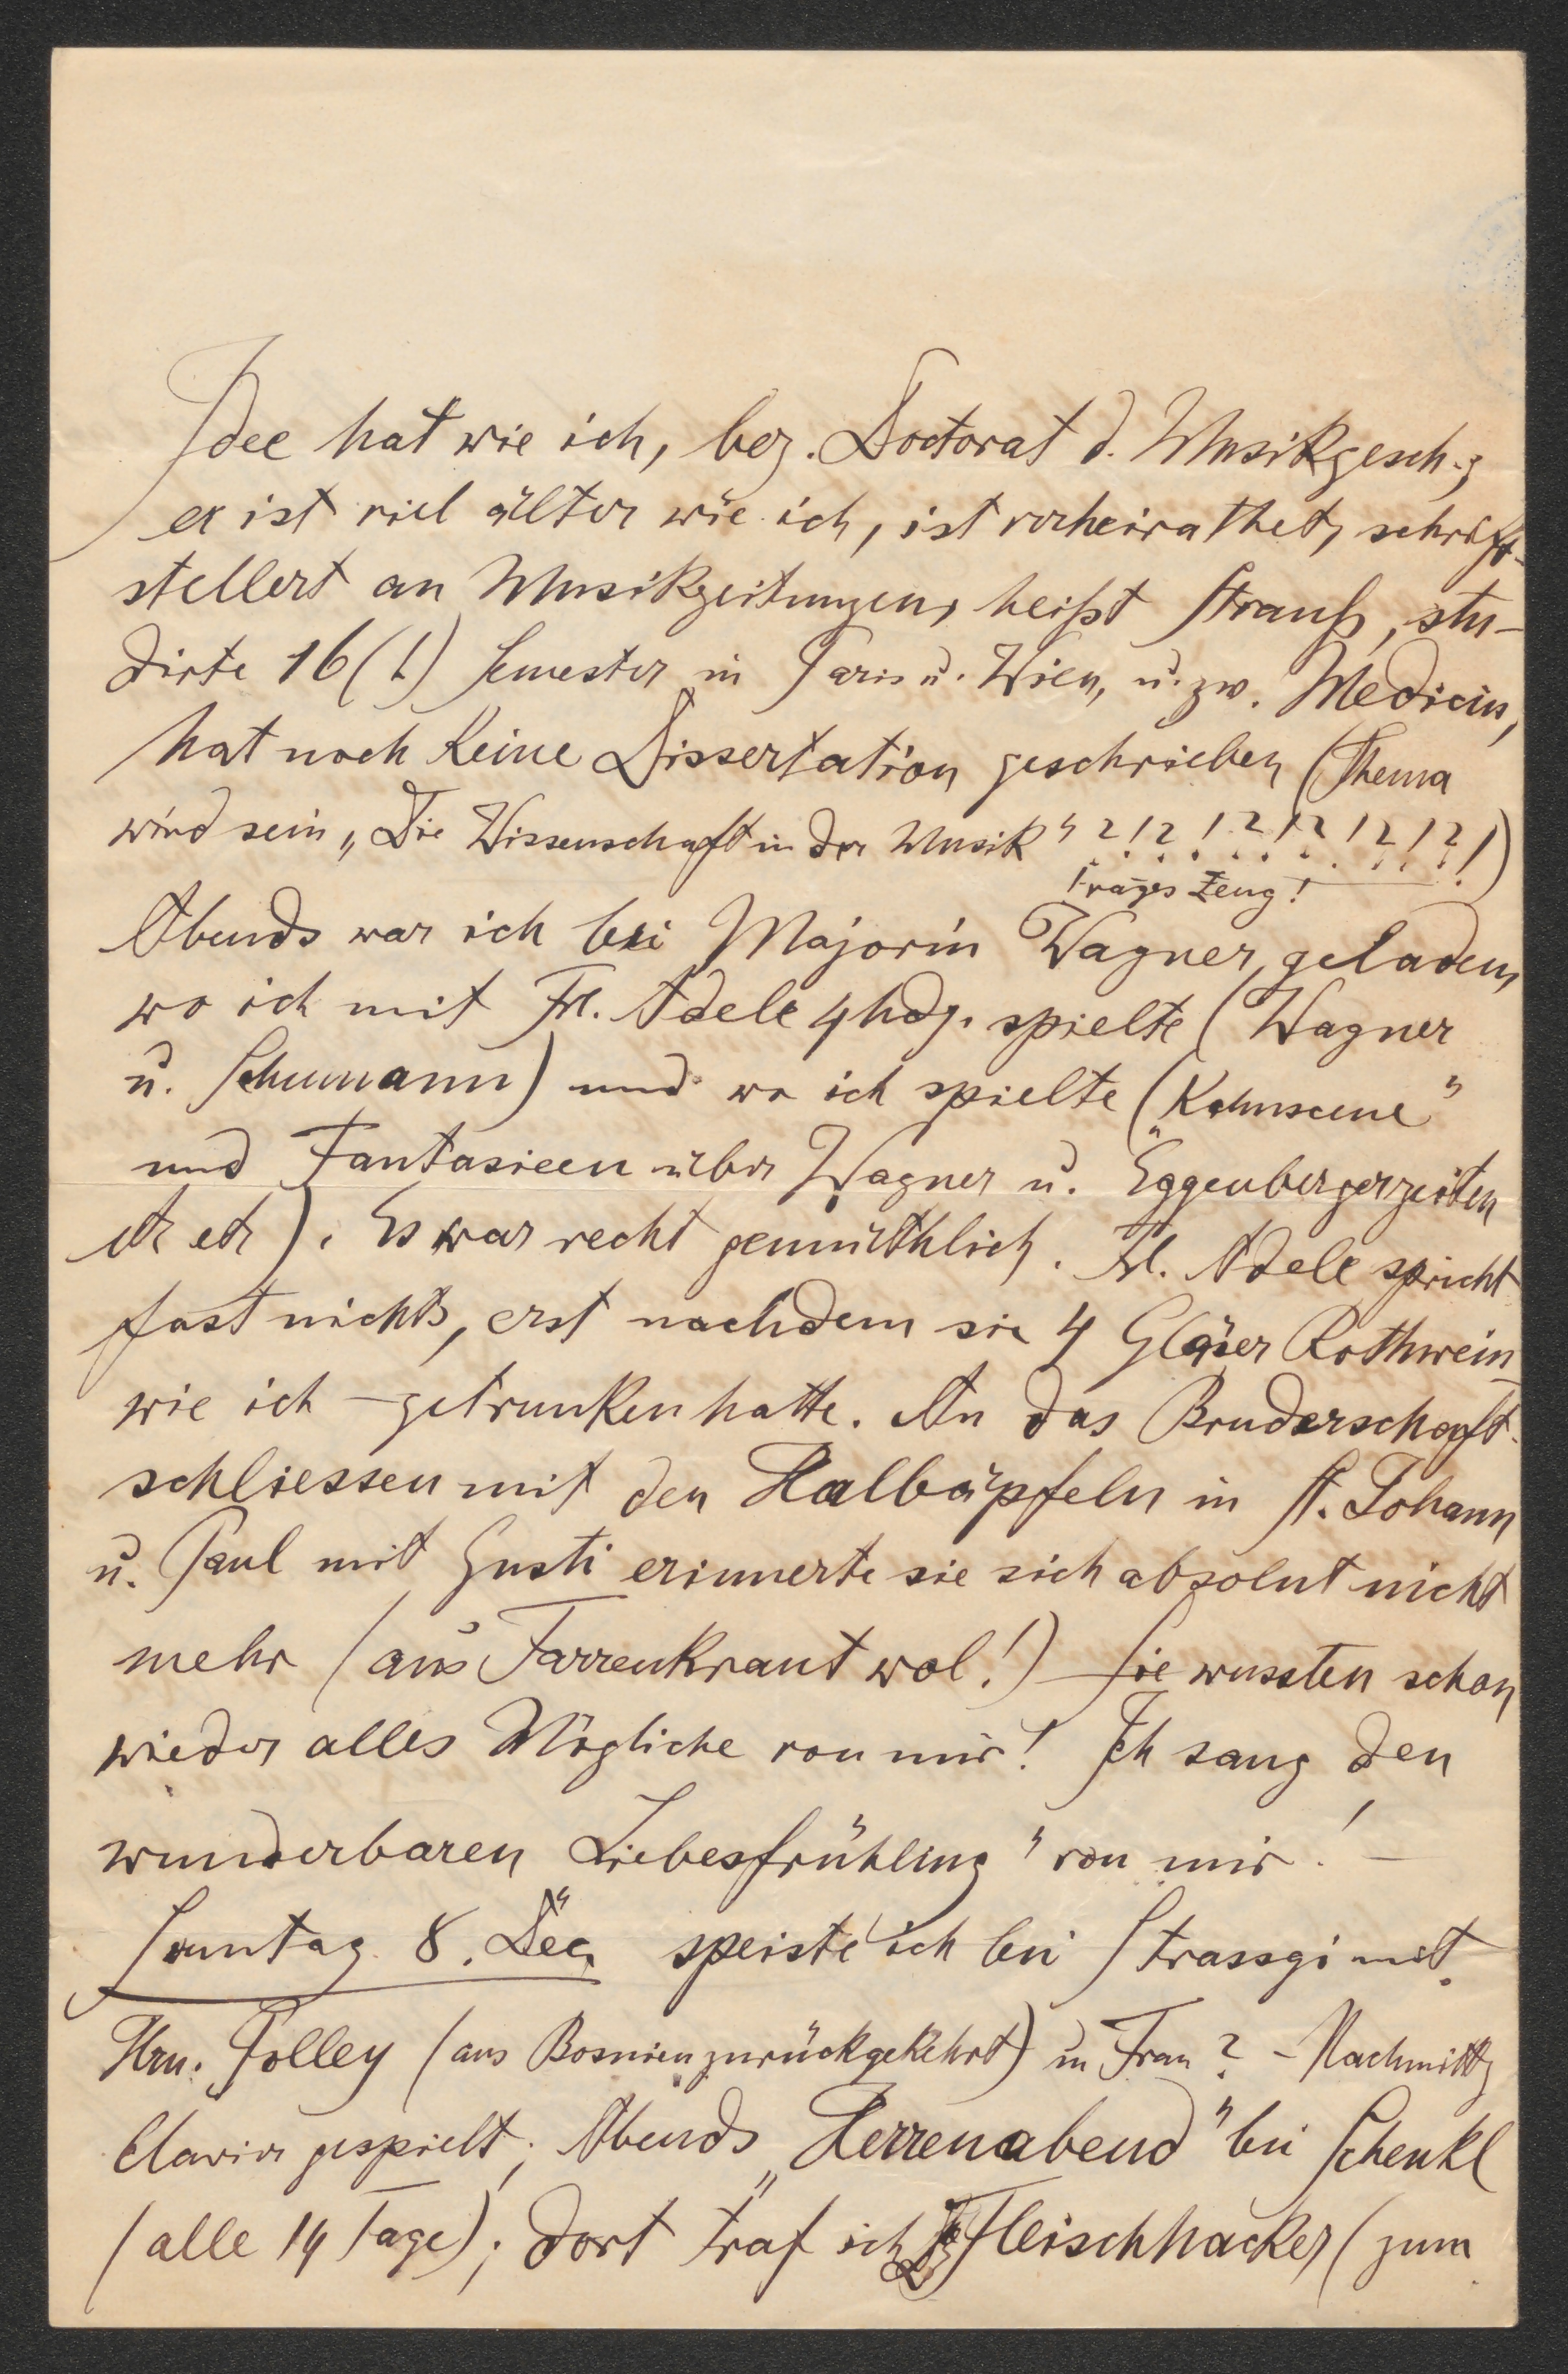 Idee hat wie ich, bez. Doctorat d. Musikgesch.;
er ist viel älter wie ich, ist verheirathet, schrift-
stellert an Musikzeitungen, heißt Strauß, stu-
dirte 16 (!) Semester in Paris u. Wien, u. zw. Medicin,
hat noch keine Dissertation geschrieben (Thema
wird sein „Die Wissenschaft in der Musik“ ?!?!?!?!?!?!)
Vages Zeug!
Abends war ich bei Majorin Wagner geladen,
wo ich mit Frl. Adele 4hdg. spielte (Wagner
u. Schumann) und wo ich spielte („Kahnscene“
und Fantasieen über Wagner u. Eggenbergerzeiten
etc etc). Es war recht gemüthlich. Frl. Adele spricht
fast nichts, erst nachdem sie 4 Gläser Rothwein –
wie ich – getrunken hatte. An das Bruderschaft-
schliessen mit den Halbäpfeln in St. Johann
u. Paul mit Gusti erinnerte sie sich absolut nicht
mehr (ans Farrenkraut wol!) Sie wussten schon
wieder alles Mögliche von mir! Ich sang den
wunderbaren „Liebesfrühling“ von mir! –
Sonntag 8. Dec. speiste ich bei Strassgi mit
Hrn. Polley (aus Bosnien zurückgekehrt) u Frau? – Nachmittg
Clavier gespielt; Abends „Herrenabend“ bei Schenkl
(alle 14 Tage); dort traf ich Fleischhacker (zum